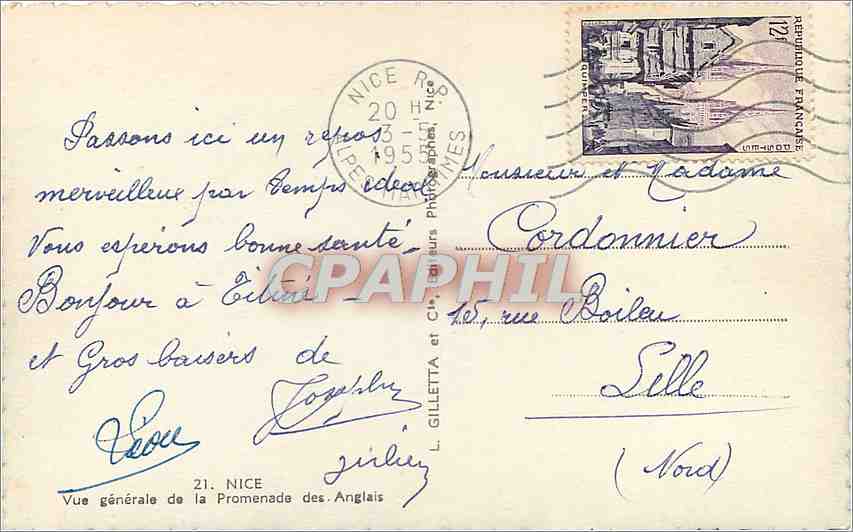 Passons ici un repos
merveilleux par temps idéal,
Vous espérons bonne santé -
Bonjour à
et Gros baisers de
Léon
21. NICE
Vue générale de la Promenade des Anglais
L. GILLETTA et Cie, Editeurs Photographes, Nice
NICE R.P.
20 H
3 - 5
1955
ALPES MARITIMES
REPUBLIQUE FRANÇAISE
12F
POSTES
QUIMPER
Monsieur et Madame
Cordonnier
15, rue Boileau
Lille
(Nord)
CPAPHIL